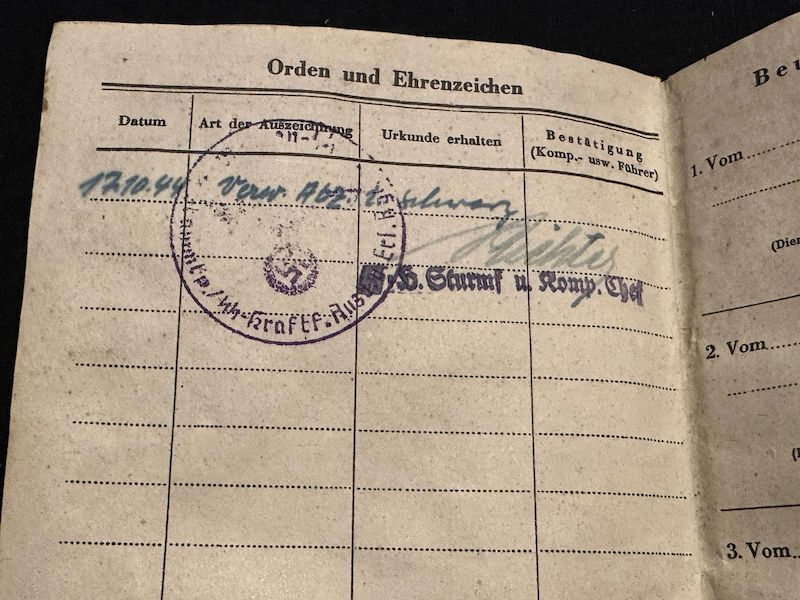 Orden und Ehrenzeichen
Datum
Art der Auszeichnung
Urkunde erhalten
Bestätigung
(Komp.- usw. Führer)
17.10.44 Verw. Abz. i. schwarz
Sturmf u. Komp. Chef
Kraftf.-Ausb.
Beu
1. Vom
(Dien
2. Vom
3. Vom